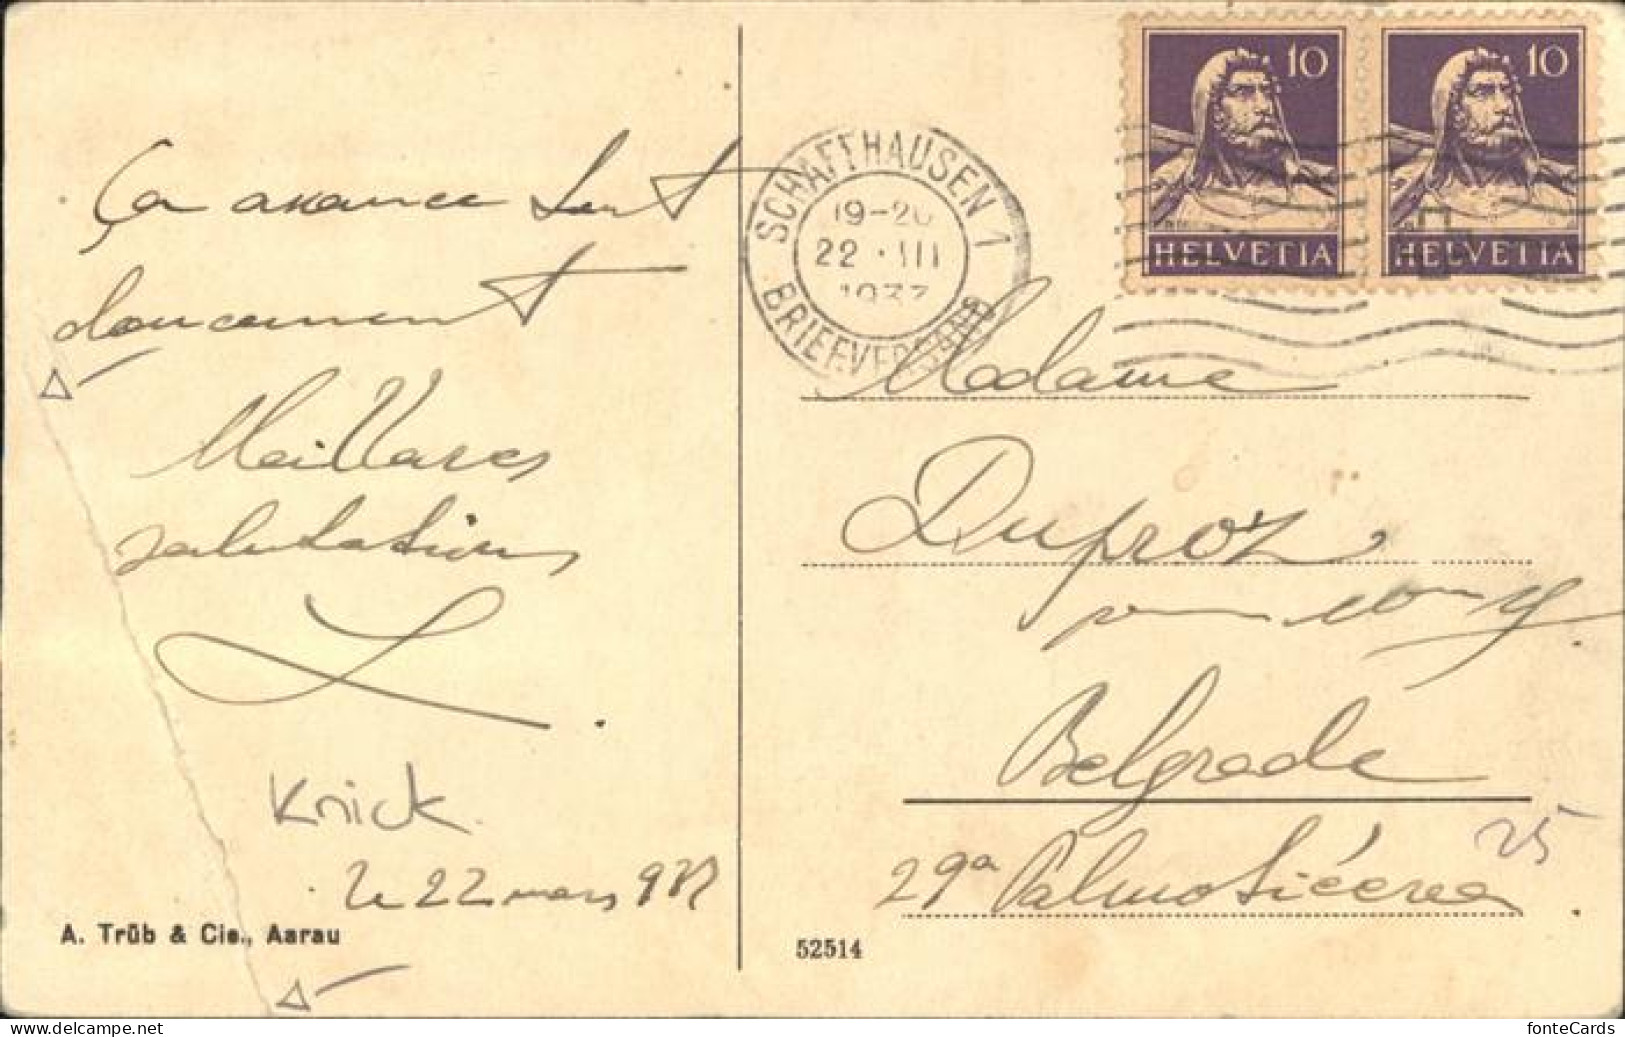 Ça avance tout
doucement
Meilleures
salutations
Knick
le 22 mars 937
A. Trüb & Cie., Aarau
10
HELVETIA
10
HELVETIA
SCHAFFHAUSEN 1
19-20
22 · III
1937
BRIEFVERSAND
Madame
Duproz
Belgrade
25
29a Palmotićeva
52514
fonteCards